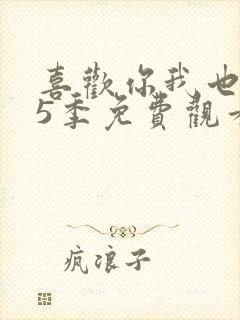 喜歡你我也
5季免費觀
疯浪子